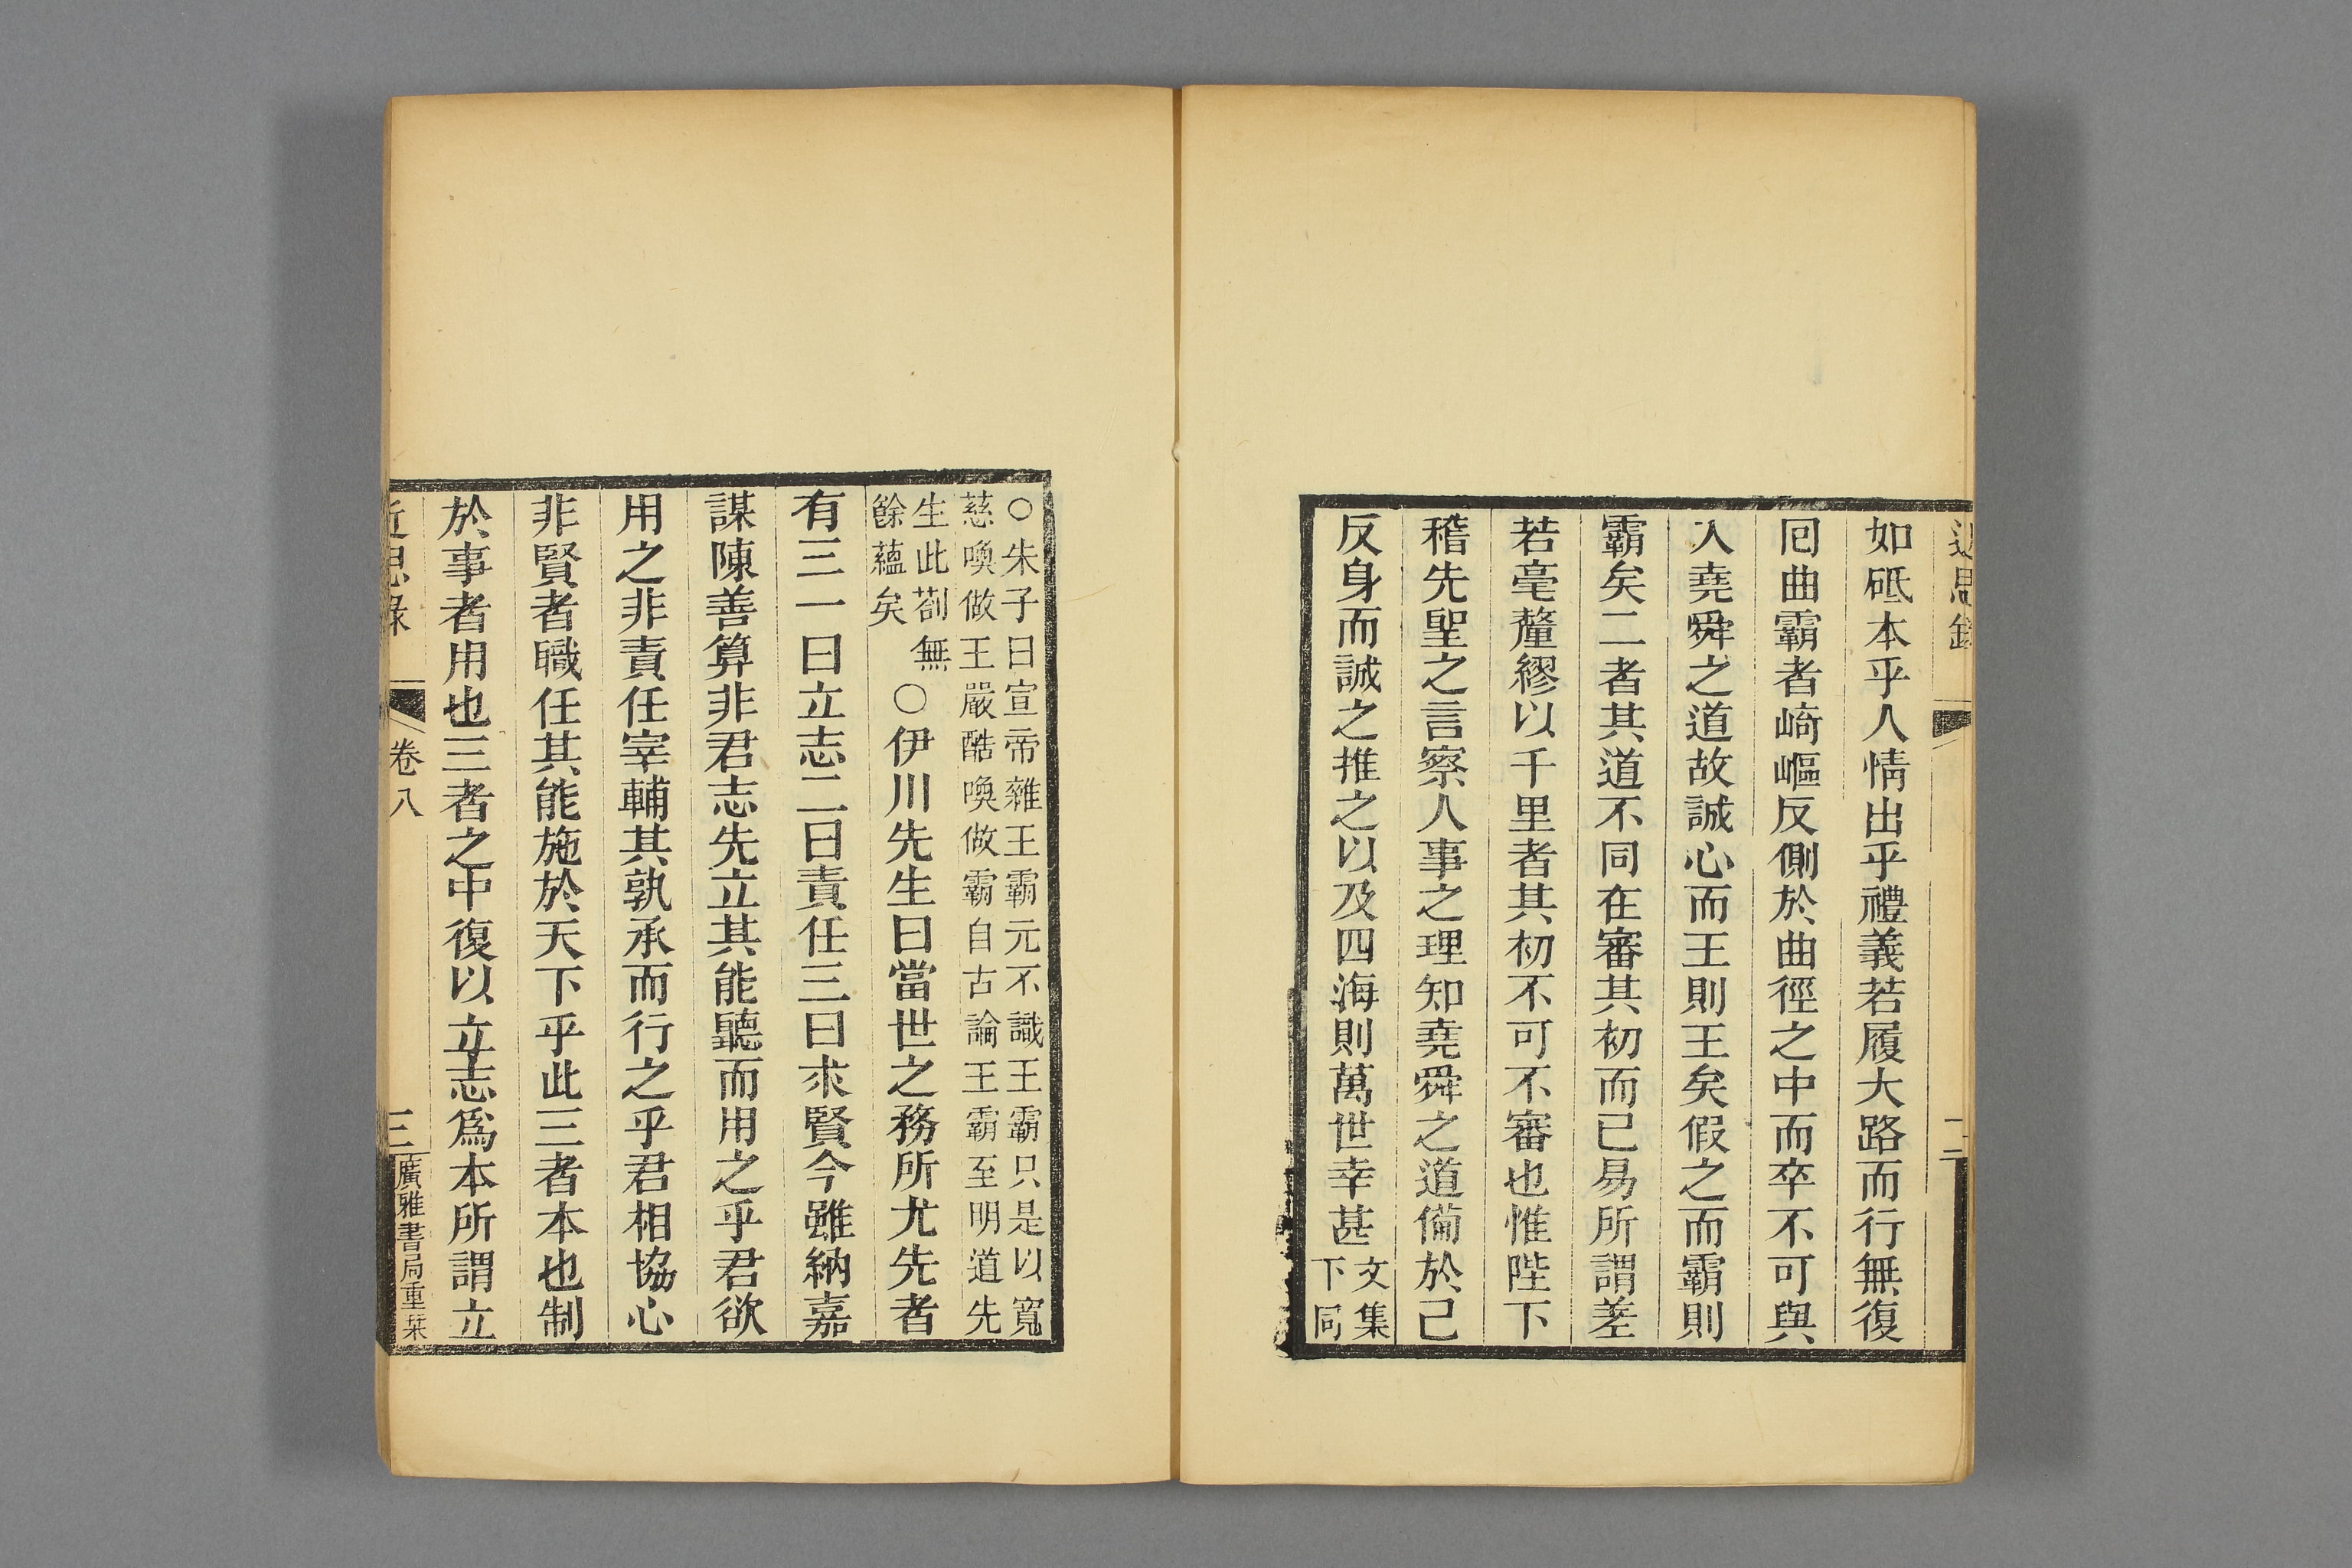 近思錄
二
如砥本乎人情出乎禮義若履大路而行無復
囘曲霸者崎嶇反側於曲徑之中而卒不可與
入堯舜之道故誠心而王則王矣假之而霸則
霸矣二者其道不同在審其初而已易所謂差
若毫釐繆以千里者其初不可不審也惟陛下
稽先聖之言察人事之理知堯舜之道備於己
反身而誠之推之以及四海則萬世幸甚
文集
下同
○朱子曰宣帝雜王霸元不識王霸只是以寬
慈喚做王嚴酷喚做霸自古論王霸至明道先
生此劄無
餘蘊矣
○伊川先生曰當世之務所尤先者
有三一曰立志二曰責任三曰求賢今雖納嘉
謀陳善算非君志先立其能聽而用之乎君欲
用之非責任宰輔其孰承而行之乎君相協心
非賢者職任其能施於天下乎此三者本也制
於事者用也三者之中復以立志爲本所謂立
近思錄
卷八
三
廣雅書局重栞